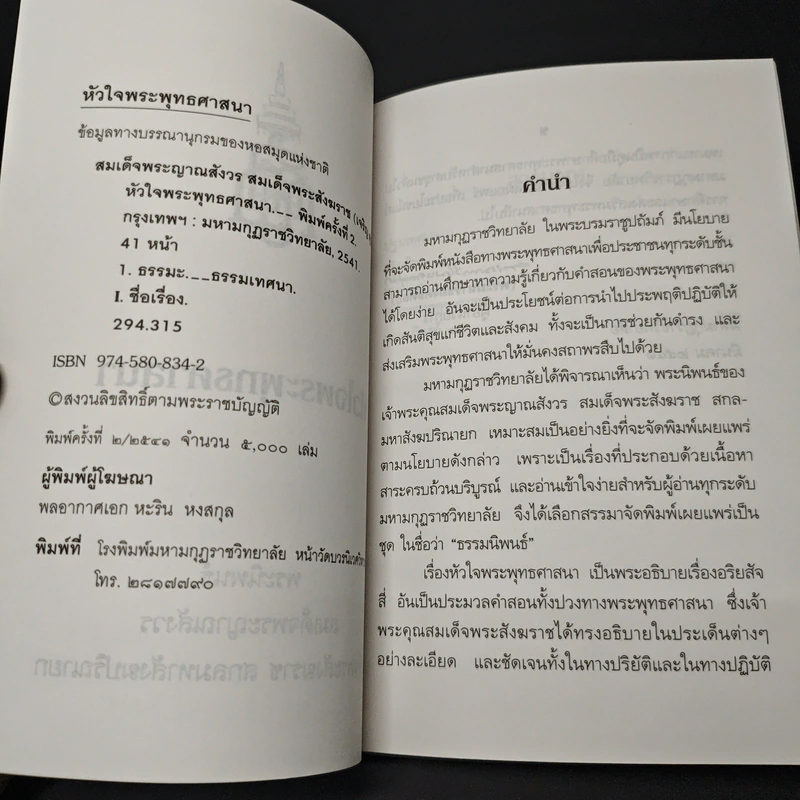 หัวใจพระพุทธศาสนา
ข้อมูลทางบรรณานุกรมของหอสมุดแห่งชาติ
สมเด็จพระญาณสังวร สมเด็จพระสังฆราช
หัวใจพระพุทธศาสนา.__ พิมพ์ครั้งที่ 2.
กรุงเทพฯ : มหามกุฏราชวิทยาลัย, 2541.
41 หน้า
1. ธรรมะ.__ธรรมเทศนา.
I. ชื่อเรื่อง.
294.315
ISBN 974-580-834-2
©สงวนลิขสิทธิ์ตามพระราชบัญญัติ
พิมพ์ครั้งที่ ๒/๒๕๔๑ จำนวน ๕,๐๐๐ เล่ม
ผู้พิมพ์ผู้โฆษณา
พลอากาศเอก หะริน หงสกุล
พิมพ์ที่ โรงพิมพ์มหามกุฏราชวิทยาลัย หน้าวัดบวรนิเวศวิหาร
โทร. ๒๘๑๗๗๙๐
คำนำ
มหามกุฏราชวิทยาลัย ในพระบรมราชูปถัมภ์ มีนโยบาย
ที่จะจัดพิมพ์หนังสือทางพระพุทธศาสนาเพื่อประชาชนทุกระดับชั้น
สามารถอ่านศึกษาหาความรู้เกี่ยวกับคำสอนของพระพุทธศาสนา
ได้โดยง่าย อันจะเป็นประโยชน์ต่อการนำไปประพฤติปฏิบัติให้
เกิดสันติสุขแก่ชีวิตและสังคม ทั้งจะเป็นการช่วยกันดำรง และ
ส่งเสริมพระพุทธศาสนาให้มั่นคงสถาพรสืบไปด้วย
มหามกุฏราชวิทยาลัยได้พิจารณาเห็นว่า พระนิพนธ์ของ
เจ้าพระคุณสมเด็จพระญาณสังวร สมเด็จพระสังฆราช สกล-
มหาสังฆปริณายก เหมาะสมเป็นอย่างยิ่งที่จะจัดพิมพ์เผยแพร่
ตามนโยบายดังกล่าว เพราะเป็นเรื่องที่ประกอบด้วยเนื้อหา
สาระครบถ้วนบริบูรณ์ และอ่านเข้าใจง่ายสำหรับผู้อ่านทุกระดับ
มหามกุฏราชวิทยาลัย จึงได้เลือกสรรมาจัดพิมพ์เผยแพร่เป็น
ชุด ในชื่อว่า "ธรรมนิพนธ์"
เรื่องหัวใจพระพุทธศาสนา เป็นพระอธิบายเรื่องอริยสัจ
สี่ อันเป็นประมวลคำสอนทั้งปวงทางพระพุทธศาสนา ซึ่งเจ้า
พระคุณสมเด็จพระสังฆราชได้ทรงอธิบายในประเด็นต่างๆ
อย่างละเอียด และชัดเจนทั้งในทางปริยัติและในทางปฏิบัติ